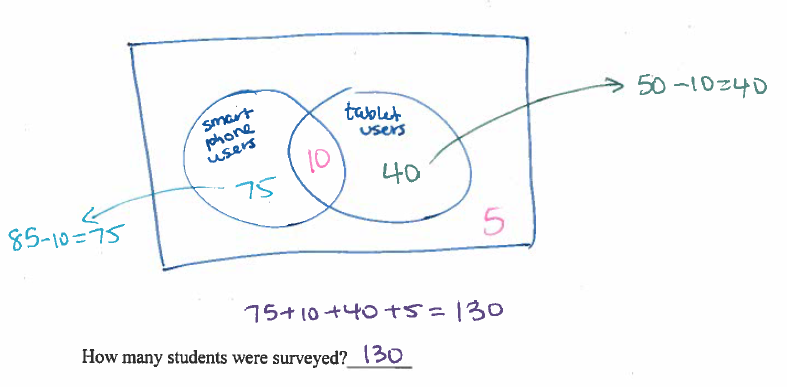 smart
phone
users
tablet
users
50-10=40
10
75
40
85-10=75
5
75+10+40+5=130
How many students were surveyed? 130